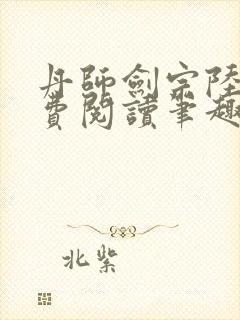 丹師劍宗陸
費閱讀筆趣
北紫